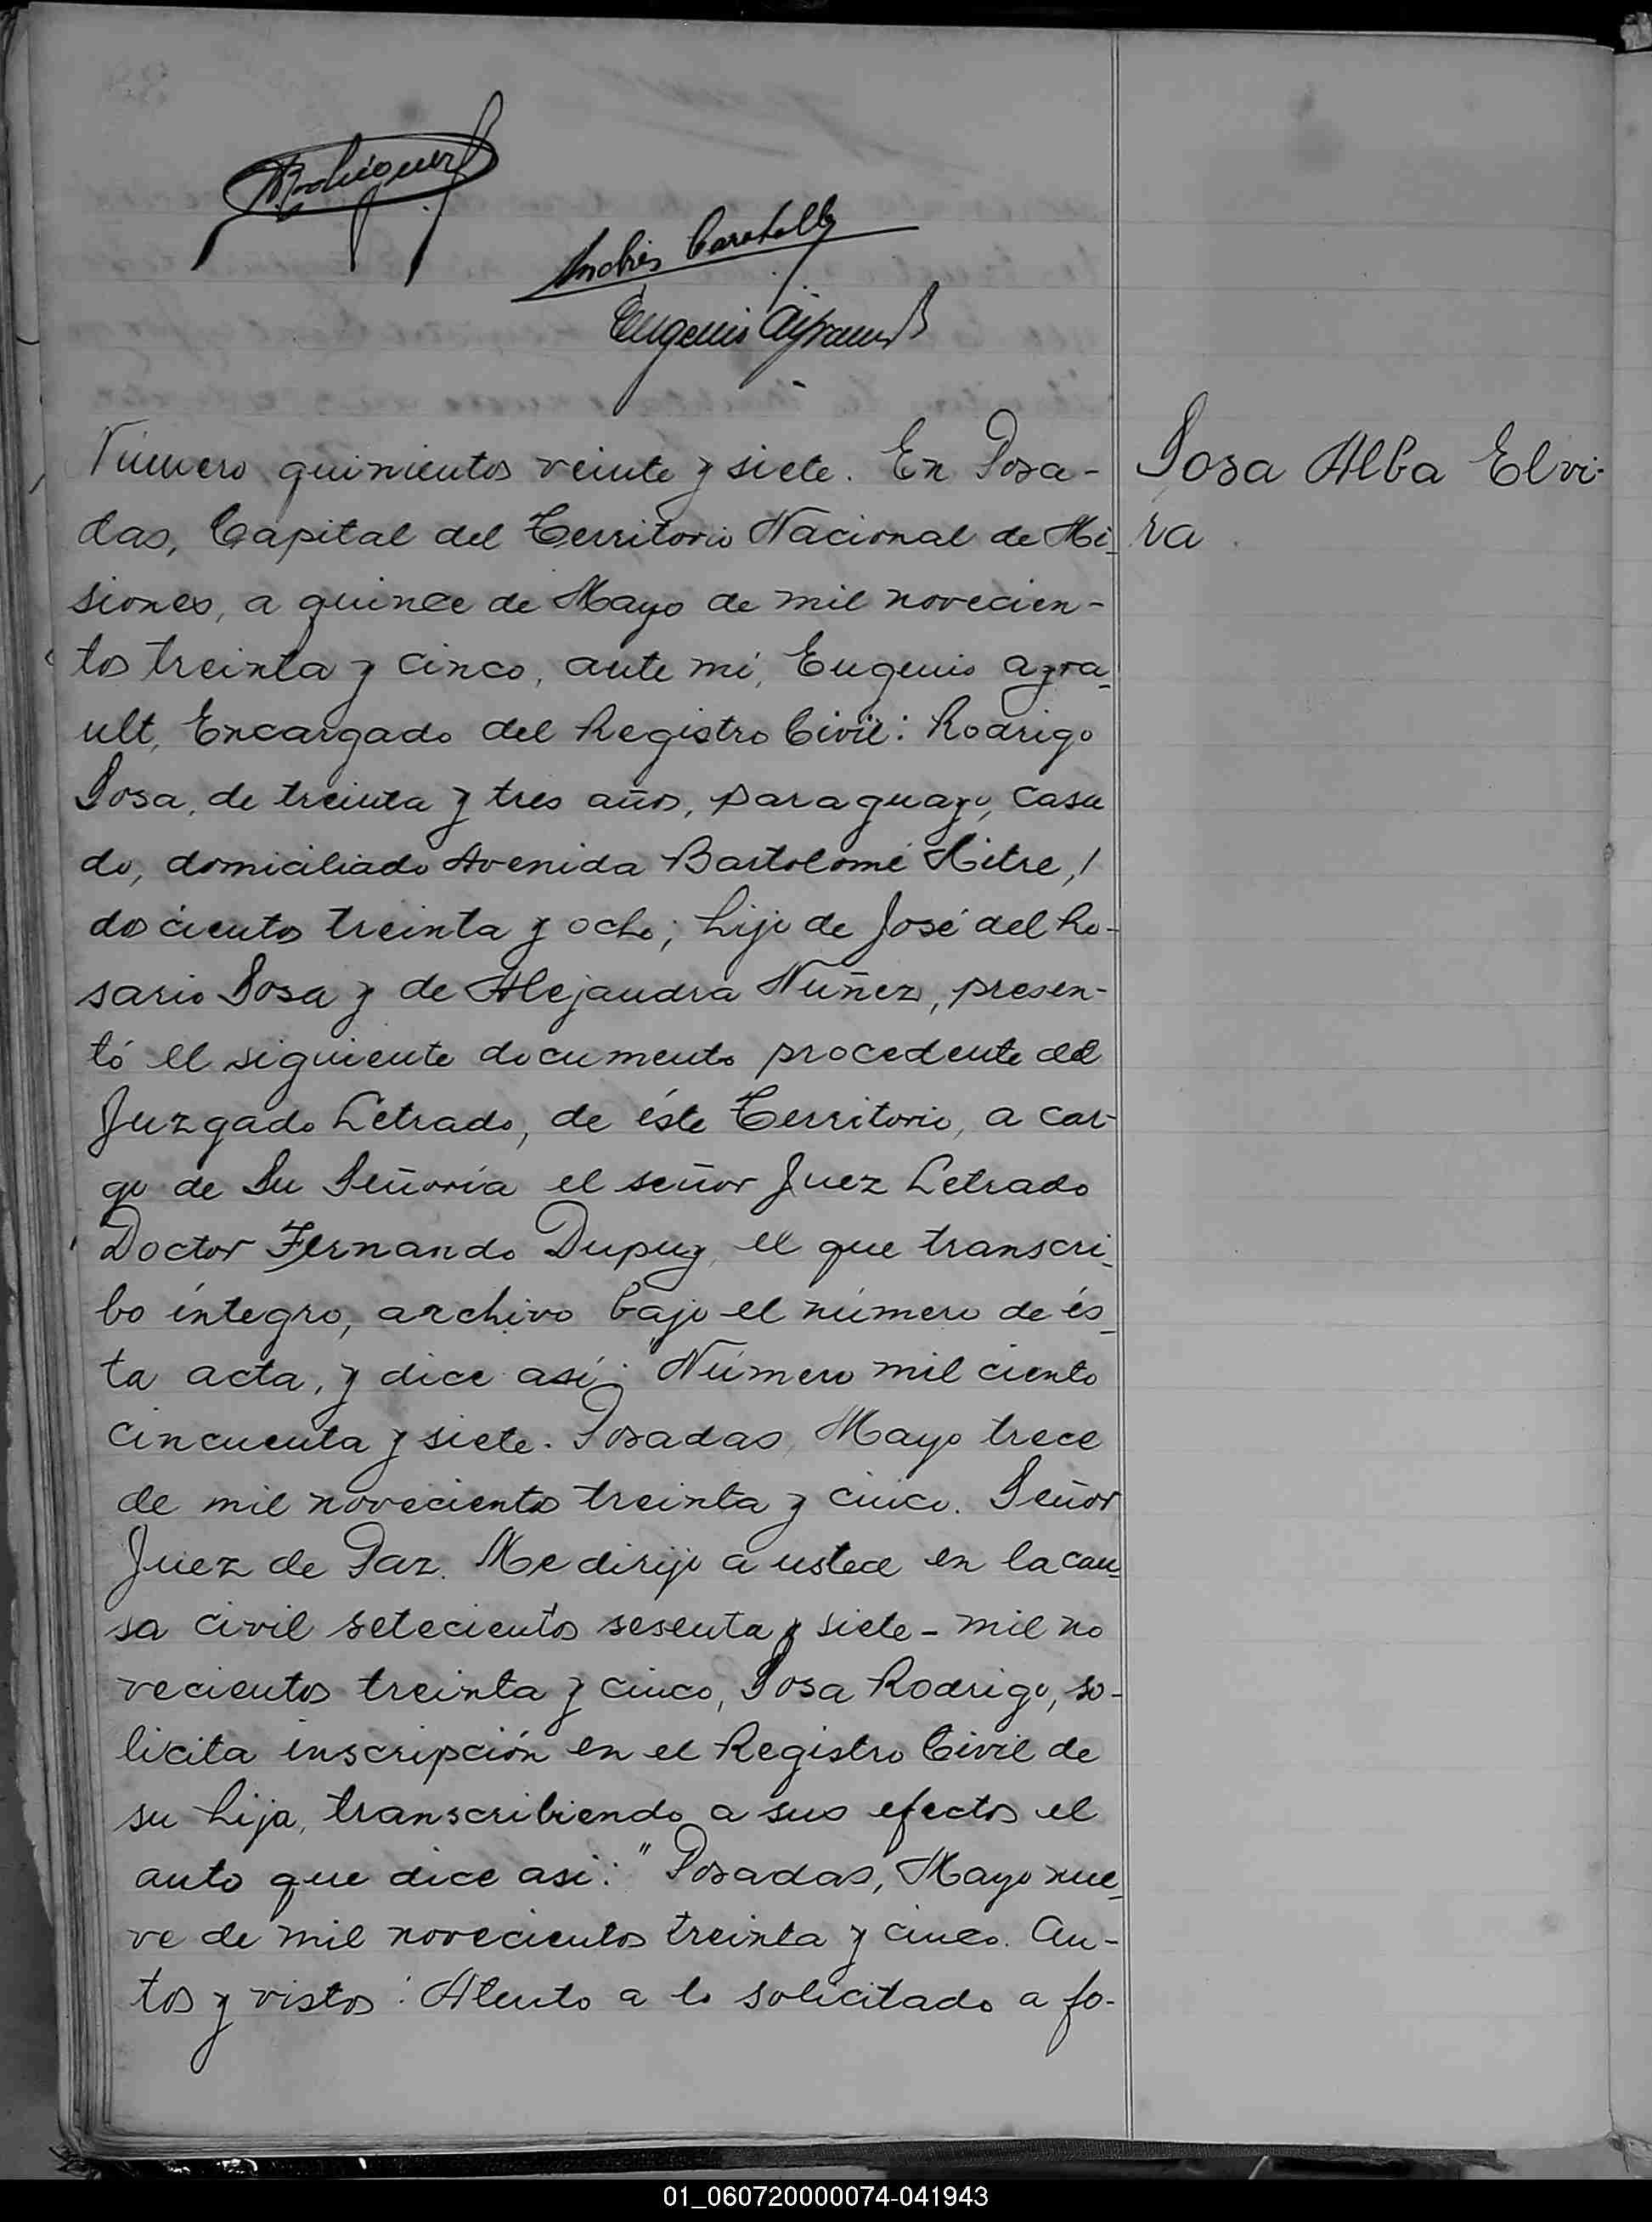 Rodriguez
Andrés
Eugenio Ayrault
Número quinientos veinte y siete. En Posa-
das, Capital del Territorio Nacional de Mi-
siones, a quince de Mayo de mil novecien-
tos treinta y cinco, ante mi, Eugenio Ayra-
ult, Encargado del Registro Civil: Rodrigo
Sosa, de treinta y tres años, paraguayo, casa
do, domiciliado Avenida Bartolomé Mitre,
docientos treinta y ocho; hijo de José del Ro-
sario Sosa y de Alejandra Nuñez, presen-
tó el siguiente documento procedente del
Juzgado Letrado, de éste Territorio, a car-
go de Su Señoría el señor Juez Letrado
Doctor Fernando Dupuy, el que transcri-
bo íntegro, archivo bajo el número de és-
ta acta, y dice así: "Número mil ciento
cincuenta y siete. Posadas, Mayo trece
de mil novecientos treinta y cinco. Señor
Juez de Paz. Me dirijo a usted en la cau-
sa civil setecientos sesenta y siete - mil no
vecientos treinta y cinco, Sosa Rodrigo, so-
licita inscripción en el Registro Civil de
su hija, transcribiendo a sus efectos el
auto que dice asi: "Posadas, Mayo nue-
ve de mil novecientos treinta y cinco. Au-
tos y vistos: Atento a lo solicitado a fo-
Sosa Alba Elvi-
ra
01_060720000074-041943